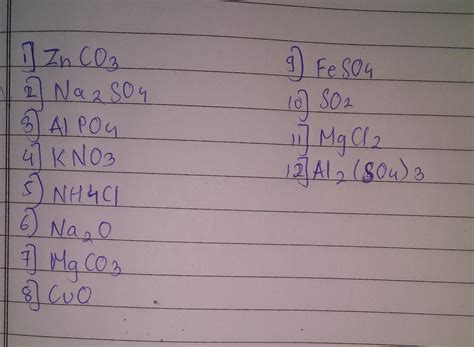 1] ZnCO3
2] Na2SO4
3] AlPO4
4] KNO3
5] NH4Cl
6] Na2O
7] MgCO3
8] CuO
9] FeSO4
10] SO2
11] MgCl2
12] Al2(SO4)3